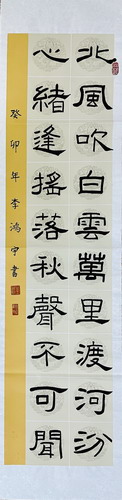 北風吹白雲萬里渡河汾
心緒逢搖落秋聲不可聞
癸卯年李鴻甲書